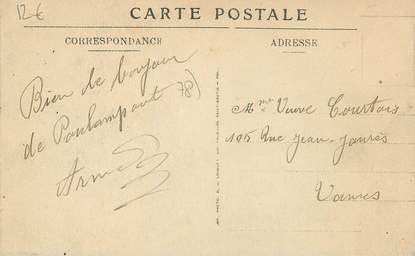 12€
CARTE POSTALE
CORRESPONDANCE
ADRESSE
Bien de bonjour
de Ponlampont 78)
Armel
Mme Veuve Courtois
195 Rue Jean-Jaurès
Vanves